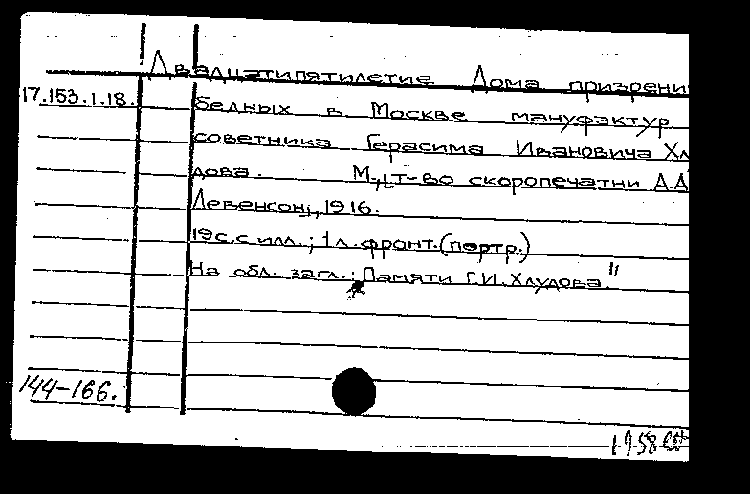 Двадцатипятилетие Дома призрени
17.153.1.18. бедных в Москве мануфактур
советника Герасима Ивановича Хл
дова. М., т-во скоропечатни А.А
Левенсон, 1916.
19с. с илл.; 1л. фронт. (портр.)
На обл. загл.: Памяти Г.И. Хлудова."
144-166.